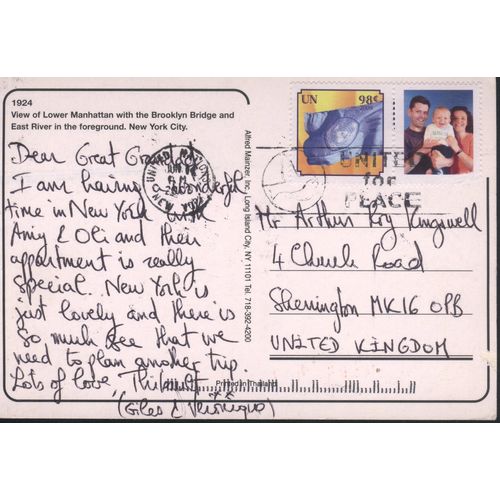 1924
View of Lower Manhattan with the Brooklyn Bridge and
East River in the foreground. New York City.
Dear Great Grandad
I am having a wonderful
time in New York with
Amy & Oli and their
appartment is really
special. New York is
just lovely and there is
so much to see that we
need to plan another trip.
Lots of love Thibault
(Giles & Véronique)
Alfred Mainzer, Inc., Long Island City, NY 11101 Tel. 718-392-4200
Printed in Thailand
UN 98c
UNITED
for
PEACE
Mr Arthur Roy Kingswell
4 Church Road
Sherrington MK16 0PB
UNITED KINGDOM